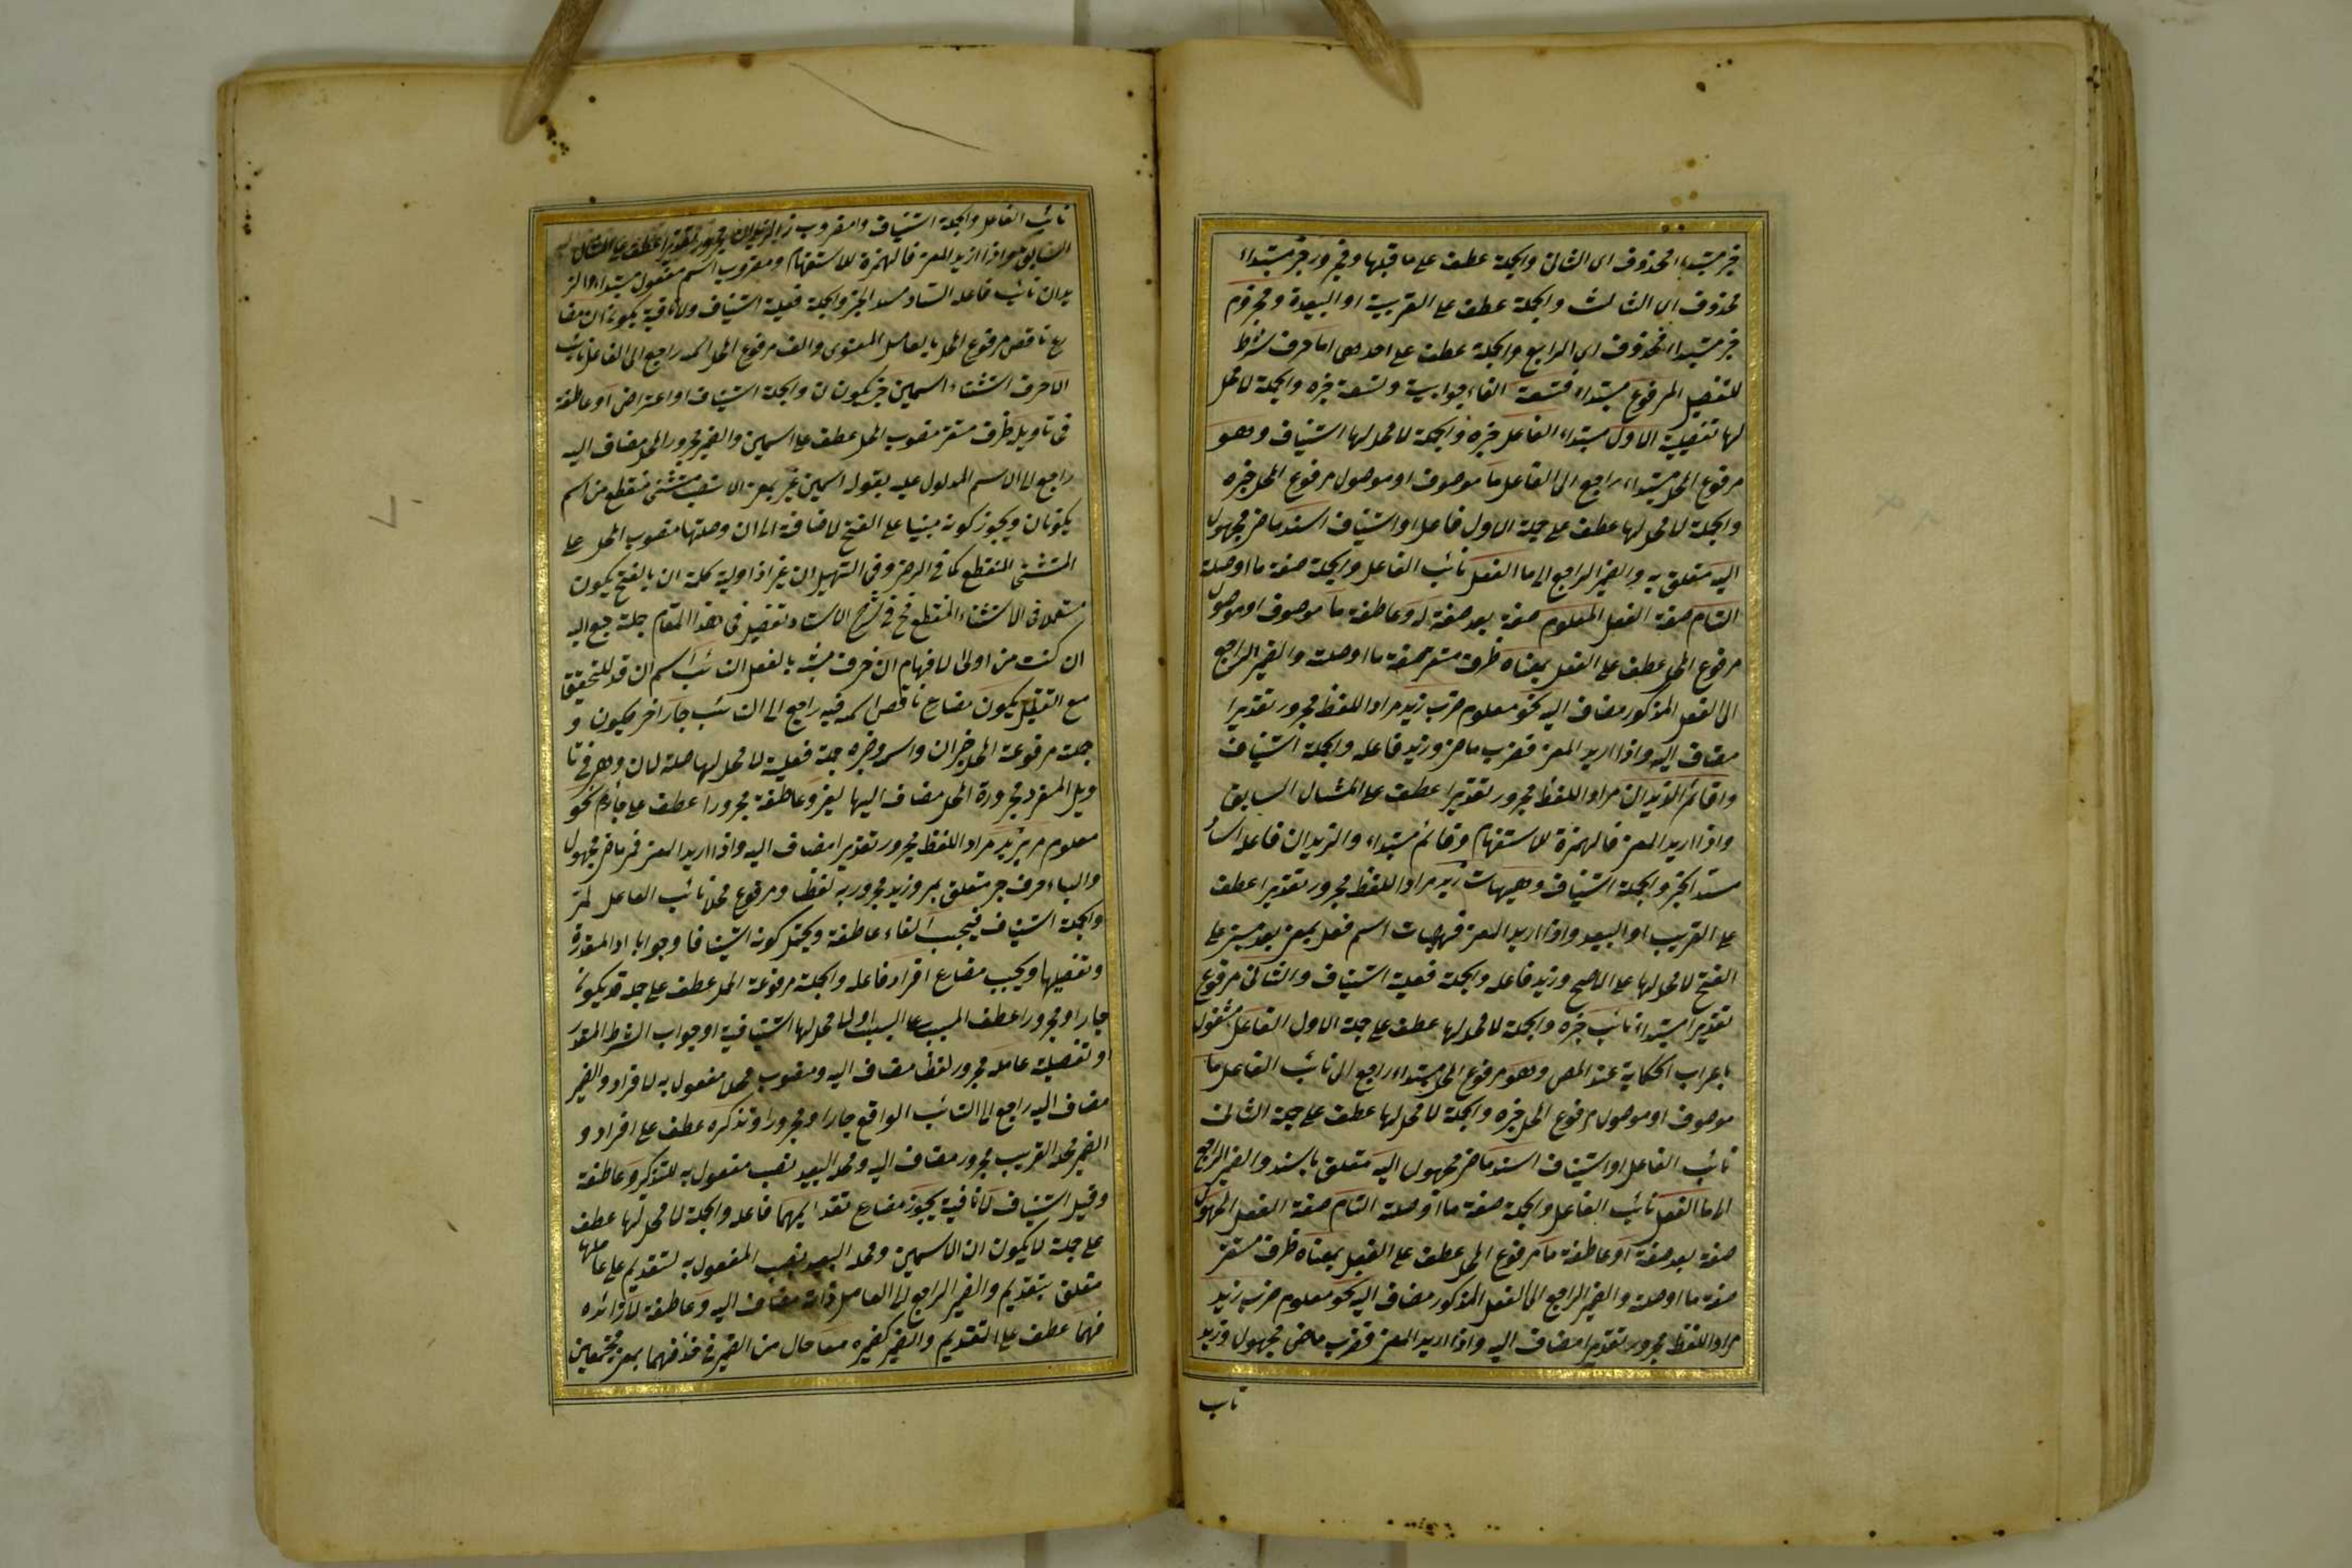 خبر مبتداء المحذوف اى الثانى والجملة عطف على ما قبلها ومجرور خبر مبتداء
محذوف اى الثالث والجملة عطف على القريبة او البعيدة ومجزوم
خبر مبتداء المحذوف اى الرابع والجملة عطف على احديهى اما حرف شرط
للتفصيل المرفوع مبتداء فتسعة الفاء جوابية وتسعة خبره والجملة لا محل
لها تفصيلية الاول مبتداء الفاعل خبره والجملة لا محل لها استيناف وهو
مرفوع المحل مبتداء راجع الى الفاعل ما موصوف او موصول مرفوع المحل خبره
والجملة لا محل لها عطف على جملة الاول فاعل او استيناف اسند ماض مجهول
اليه متعلق به والضمير الراجع الى ما الفعل نائب الفاعل والجملة صفة ما او صلة
التام صفة الفعل المعلوم صفة بعد صفة له وعاطفة ما موصوف او موصول
مرفوع المحل عطف على الفعل بمعناه ظرف مستقر صفة ما او صلته والضمير الراجع
الى الفعل المذكور مضاف اليه نحو معلوم ضرب زيد مراد اللفظ مجرور تقديرا
مضاف اليه واذا اريد المعنى فضرب ماض وزيد فاعله والجملة استيناف
واقائم الزيدان مراد اللفظ مجرور تقديرا عطف على المثال السابق
واذا اريد المعنى فالهمزة للاستفهام وقائم مبتداء والزيدان فاعله الساد
مسد الخبر والجملة استيناف وهيهات زيد مراد اللفظ مجرور تقديرا عطف
على القريب او البعيد واذا اريد المعنى فهيهات اسم فعل بمعنى بعد مبنى على
الفتح لا محل لها على الاصح وزيد فاعله والجملة فعلية استيناف والثانى مرفوع
تقديرا مبتداء نائب خبره والجملة لا محل لها عطف على جملة الاول الفاعل مشغول
باعراب الحكاية عند المص وهو مرفوع المحل مبتداء راجع الى نائب الفاعل ما
موصوف او موصول مرفوع المحل خبره والجملة لا محل لها عطف على جملة الثانى
نائب الفاعل او استيناف اسند ماض مجهول اليه متعلق باسند والضمير الراجع
الى ما الفعل نائب الفاعل والجملة صفة ما او صلة التام صفة الفعل المجهول
صفة بعد صفة او عاطفة ما مرفوع المحل عطف على الفعل بمعناه ظرف مستقر
صفة ما او صلته والضمير الراجع الى الفعل المذكور مضاف اليه نحو معلوم ضرب زيد
مراد اللفظ مجرور تقديرا مضاف اليه واذا اريد المعنى فضرب ماض مجهول وزيد
نايب
نائب الفاعل والجملة استيناف وامضروب الزيدان مجرور تقديرا عطف على المثال
السابق واذا اريد المعنى فالهمزة للاستفهام ومضروب اسم مفعول مبتداء والز
يدان نائب فاعله الساد مسد الخبر والجملة فعلية استيناف ولا نافية يكونان مضا
رع ناقص مرفوع المحل بالعامل المعنوى والف مرفوع المحل اسمه راجع الى الفاعل نائب
الا حرف استثناء اسمين خبر يكونان والجملة استيناف او اعتراض او عاطفة
فى تاويل ظرف مستقر منصوب المحل عطف على اسمين والضمير مجرور المحل مضاف اليه
راجع الى الاسم المدلول عليه بقوله اسمين غير بمعنى الا نصب مستثنى منقطع من اسم
يكونان ويجوز كونه مبنيا على الفتح لاضافته الى ان وصلتها منصوب المحل على
المستثنى المنقطع كما فى الرضى وفى التسهيل ان غير اذا وليه كلمة ان بالفتح يكون
مستعملا فى الاستثناء المنقطع فح فى شرح الاستاد تفصيل فى هذا المقام جملة جمع اليه
ان كنت من اولى الافهام ان حرف مشبه بالفعل النائب اسم ان قد للتحقيق
مع التقليل يكون مضارع ناقص اسمه فيه راجع الى النائب جارا خبر يكون و
جملته مرفوعة المحل خبر ان واسمه وخبره جملة فعلية لا محل لها صلة لان وهى فى تا
ويل المفرد مجرورة المحل مضاف اليها لغير وعاطفة مجرورا عطف على جارا نحو
معلوم مر بزيد مراد اللفظ مجرور تقديرا مضاف اليه واذا اريد المعنى فمر ماض مجهول
والباء حرف جر متعلق بمر وزيد مجرور به لفظا ومرفوع محلا نائب الفاعل لمر
والجملة استيناف فيجب الفاء عاطفة ويحتمل كونه استينافا وجوابا اذا المقدرة
وتفصيلها ويجب مضارع افراد فاعله والجملة مرفوعة المحل عطف على جملة قد يكون
جارا ومجرورا عطف المسبب على السبب او لا محل لها استينافية او جواب الشرط المقدر
او تفصيلية عامله مجرور لفظا مضاف اليه ومنصوب محلا مفعول به لافراد والضمير
مضاف اليه راجع الى النائب الواقع جارا ومجرورا وتذكره عطف على افراد و
الضمير محله القريب مجرور مضاف اليه ومحله البعيد نصب مفعول به للتذكير وعاطفة
وقيل استيناف لا نافية يجوز مضارع تقديمهما فاعله والجملة لا محل لها عطف
على جملة لا يكونان الا اسمين ومحله البعيد نصب المفعول به لتقديم على عاملها
متعلق بتقديم والضمير الراجع الى العامل ذاته مضاف اليه وعاطفة لا زائده
فهما عطف على التقديم والضمير كضميره معا حال من الضمير فى حذفهما بمعنى مجتمعين